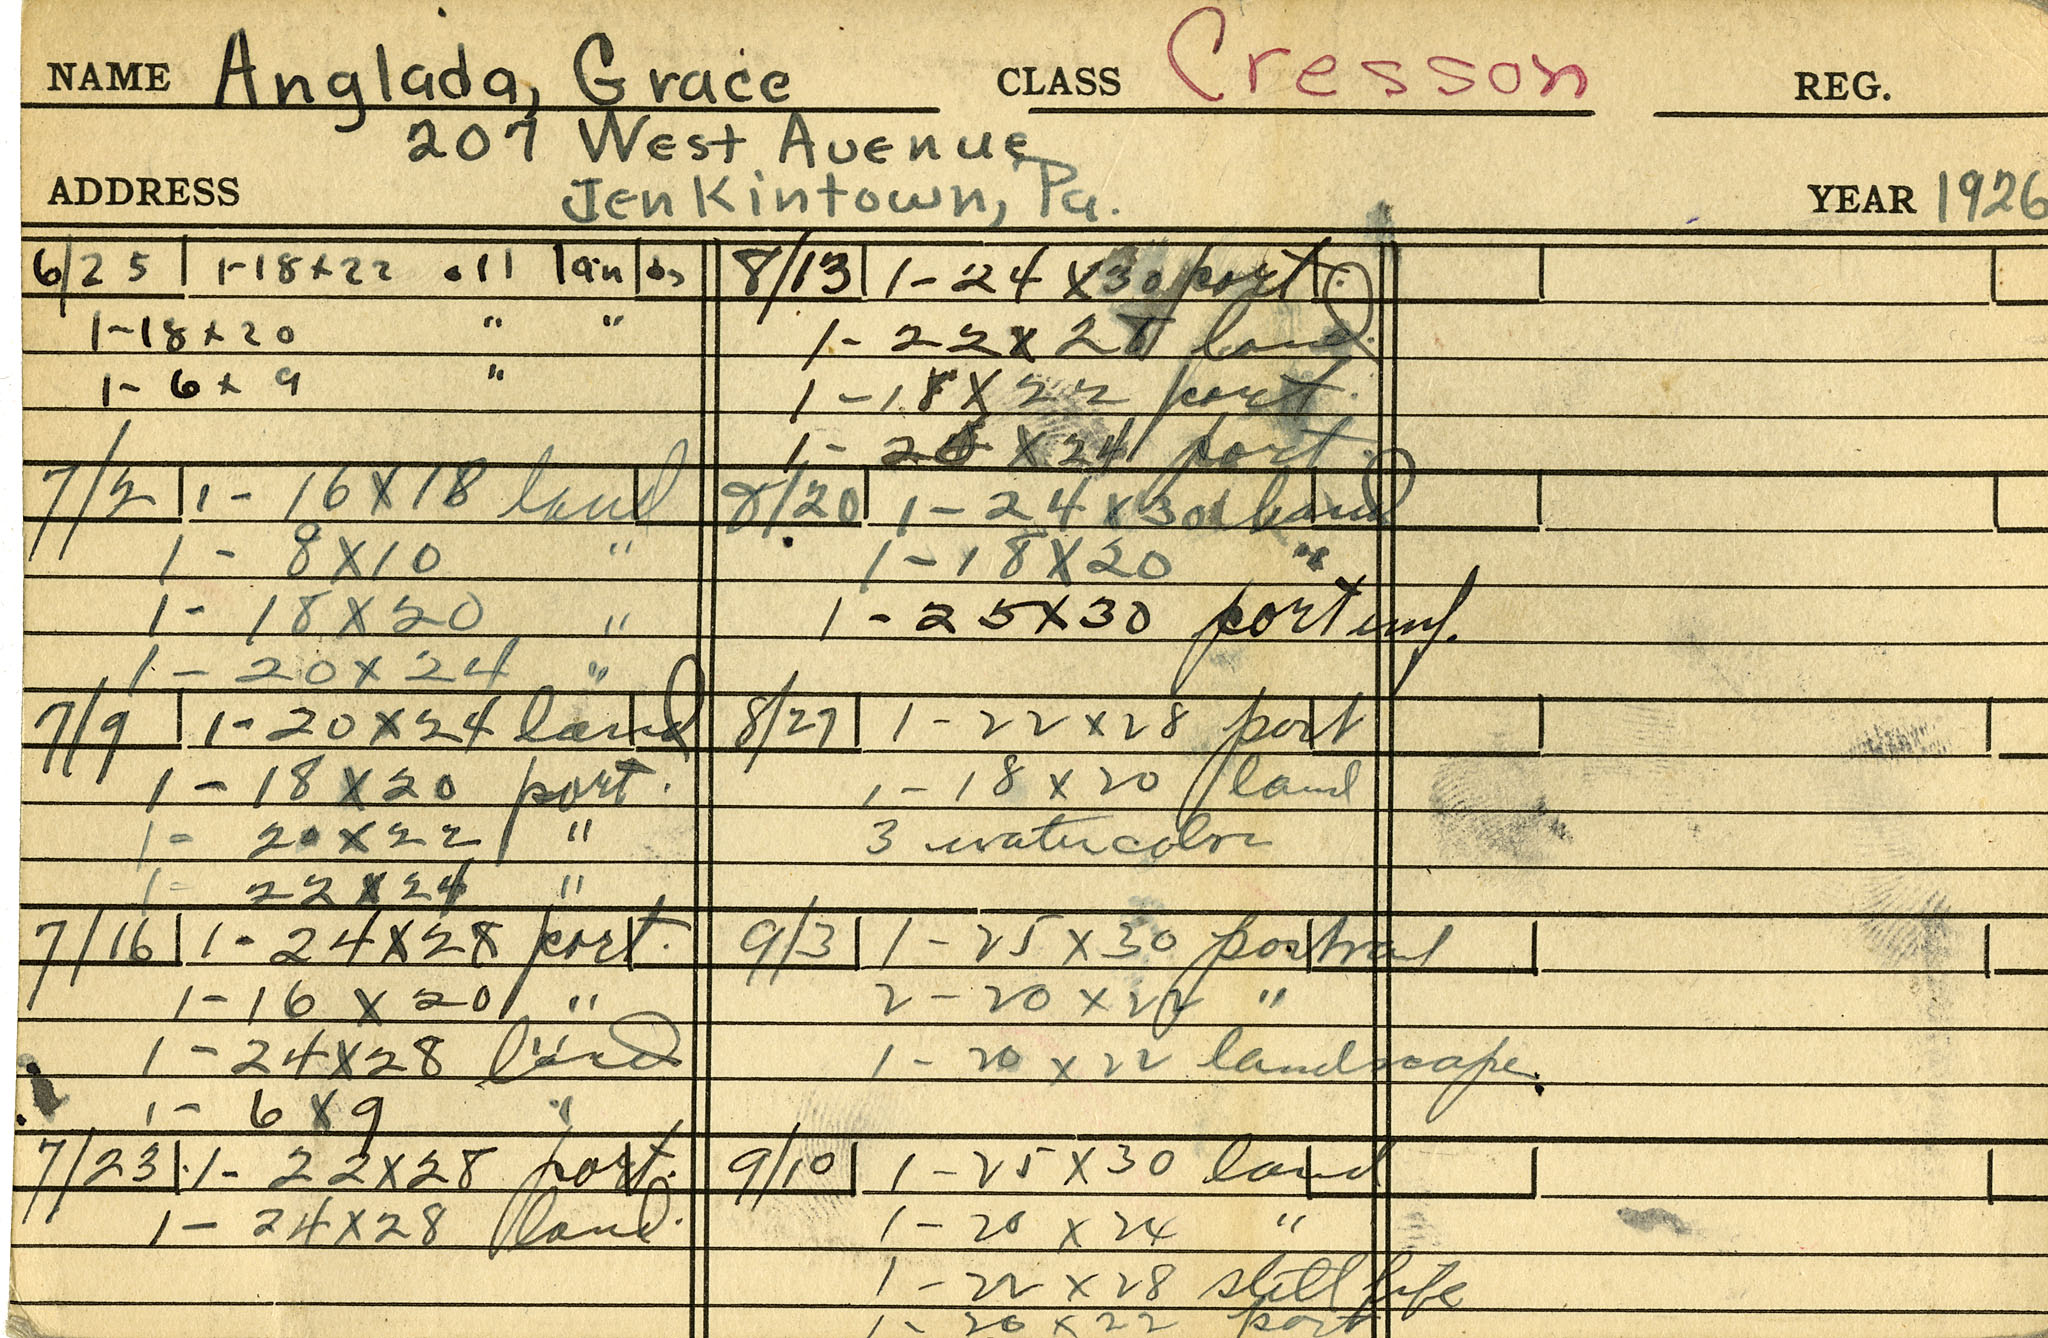 NAME Anglada, Grace CLASS Cresson REG.
207 West Avenue
ADDRESS Jenkintown, Pa. YEAR 1926
6/25 1-18x22 oil
1-18x20 " "
1-6x9 "
7/2 1-16X18 land
1-8X10 "
1-18X20 "
1-20X24 "
7/9 1-20X24 land
1-18X20 port.
1=20X22 "
1=22X24 "
7/16 1-24X28 port.
1-16X20 "
1-24X28 land
1-6X9 "
7/23 1-22X28 port.
1-24X28 land.
8/13 1-24X30 port.
1-22X land.
1-18X22 port.
1- X24 port.
8/20 1-24X30 land
1-18X20 "
1-25X30 port unf.
8/27 1-22X28 port
1-18X20 land
3 watercolor
9/3 1-25X30 portrait
2-20X22 "
1-20X22 landscape.
9/10 1-25X30 land
1-20X24 "
1-22X28 still life
1-20X22 port